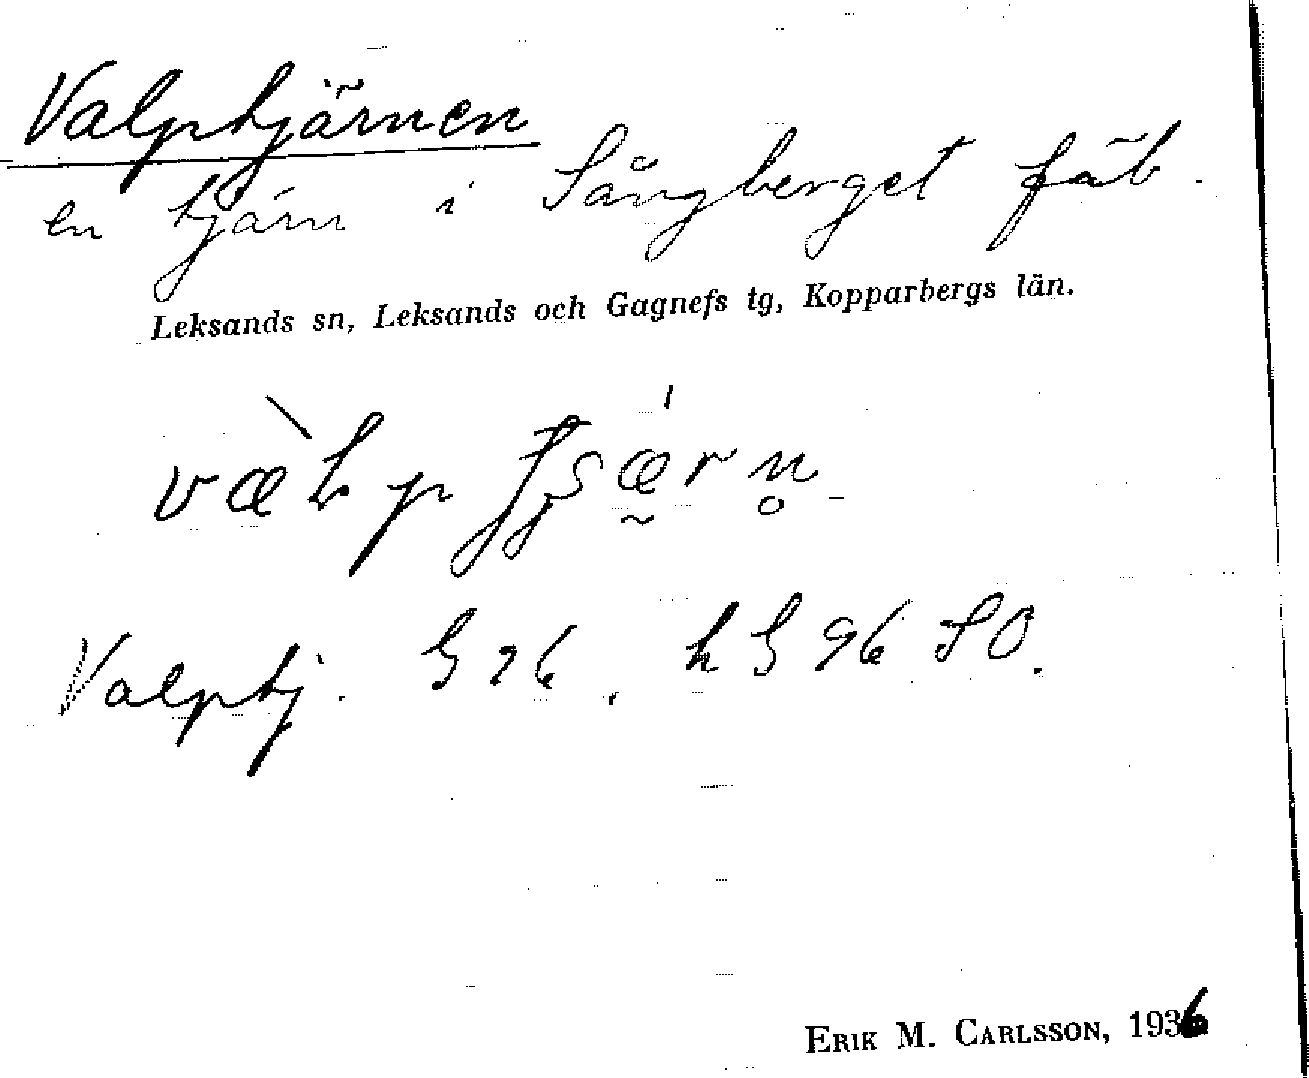 Valptjärnen
en tjärn i Sångberget fäb.
Leksands sn, Leksands och Gagnefs tg, Kopparbergs län.
Valptj. G 96, h G 96 SO.
ERIK M. CARLSSON, 1936